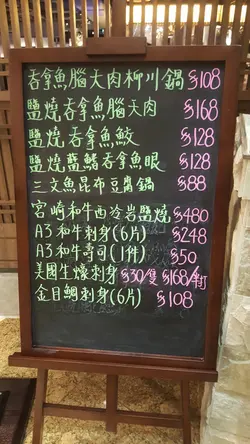 吞拿魚腦天肉柳川鍋 $108
鹽燒吞拿魚腦天肉 $168
鹽燒吞拿魚鮫 $128
鹽燒藍鰭吞拿魚眼 $128
三文魚昆布豆腐鍋 $88
宮崎和牛西冷岩鹽燒 $480
A3和牛刺身(6片) $248
A3和牛壽司(1件) $50
美國生蠔刺身 $30/隻 $168/半打
金目鯛刺身(6片) $108